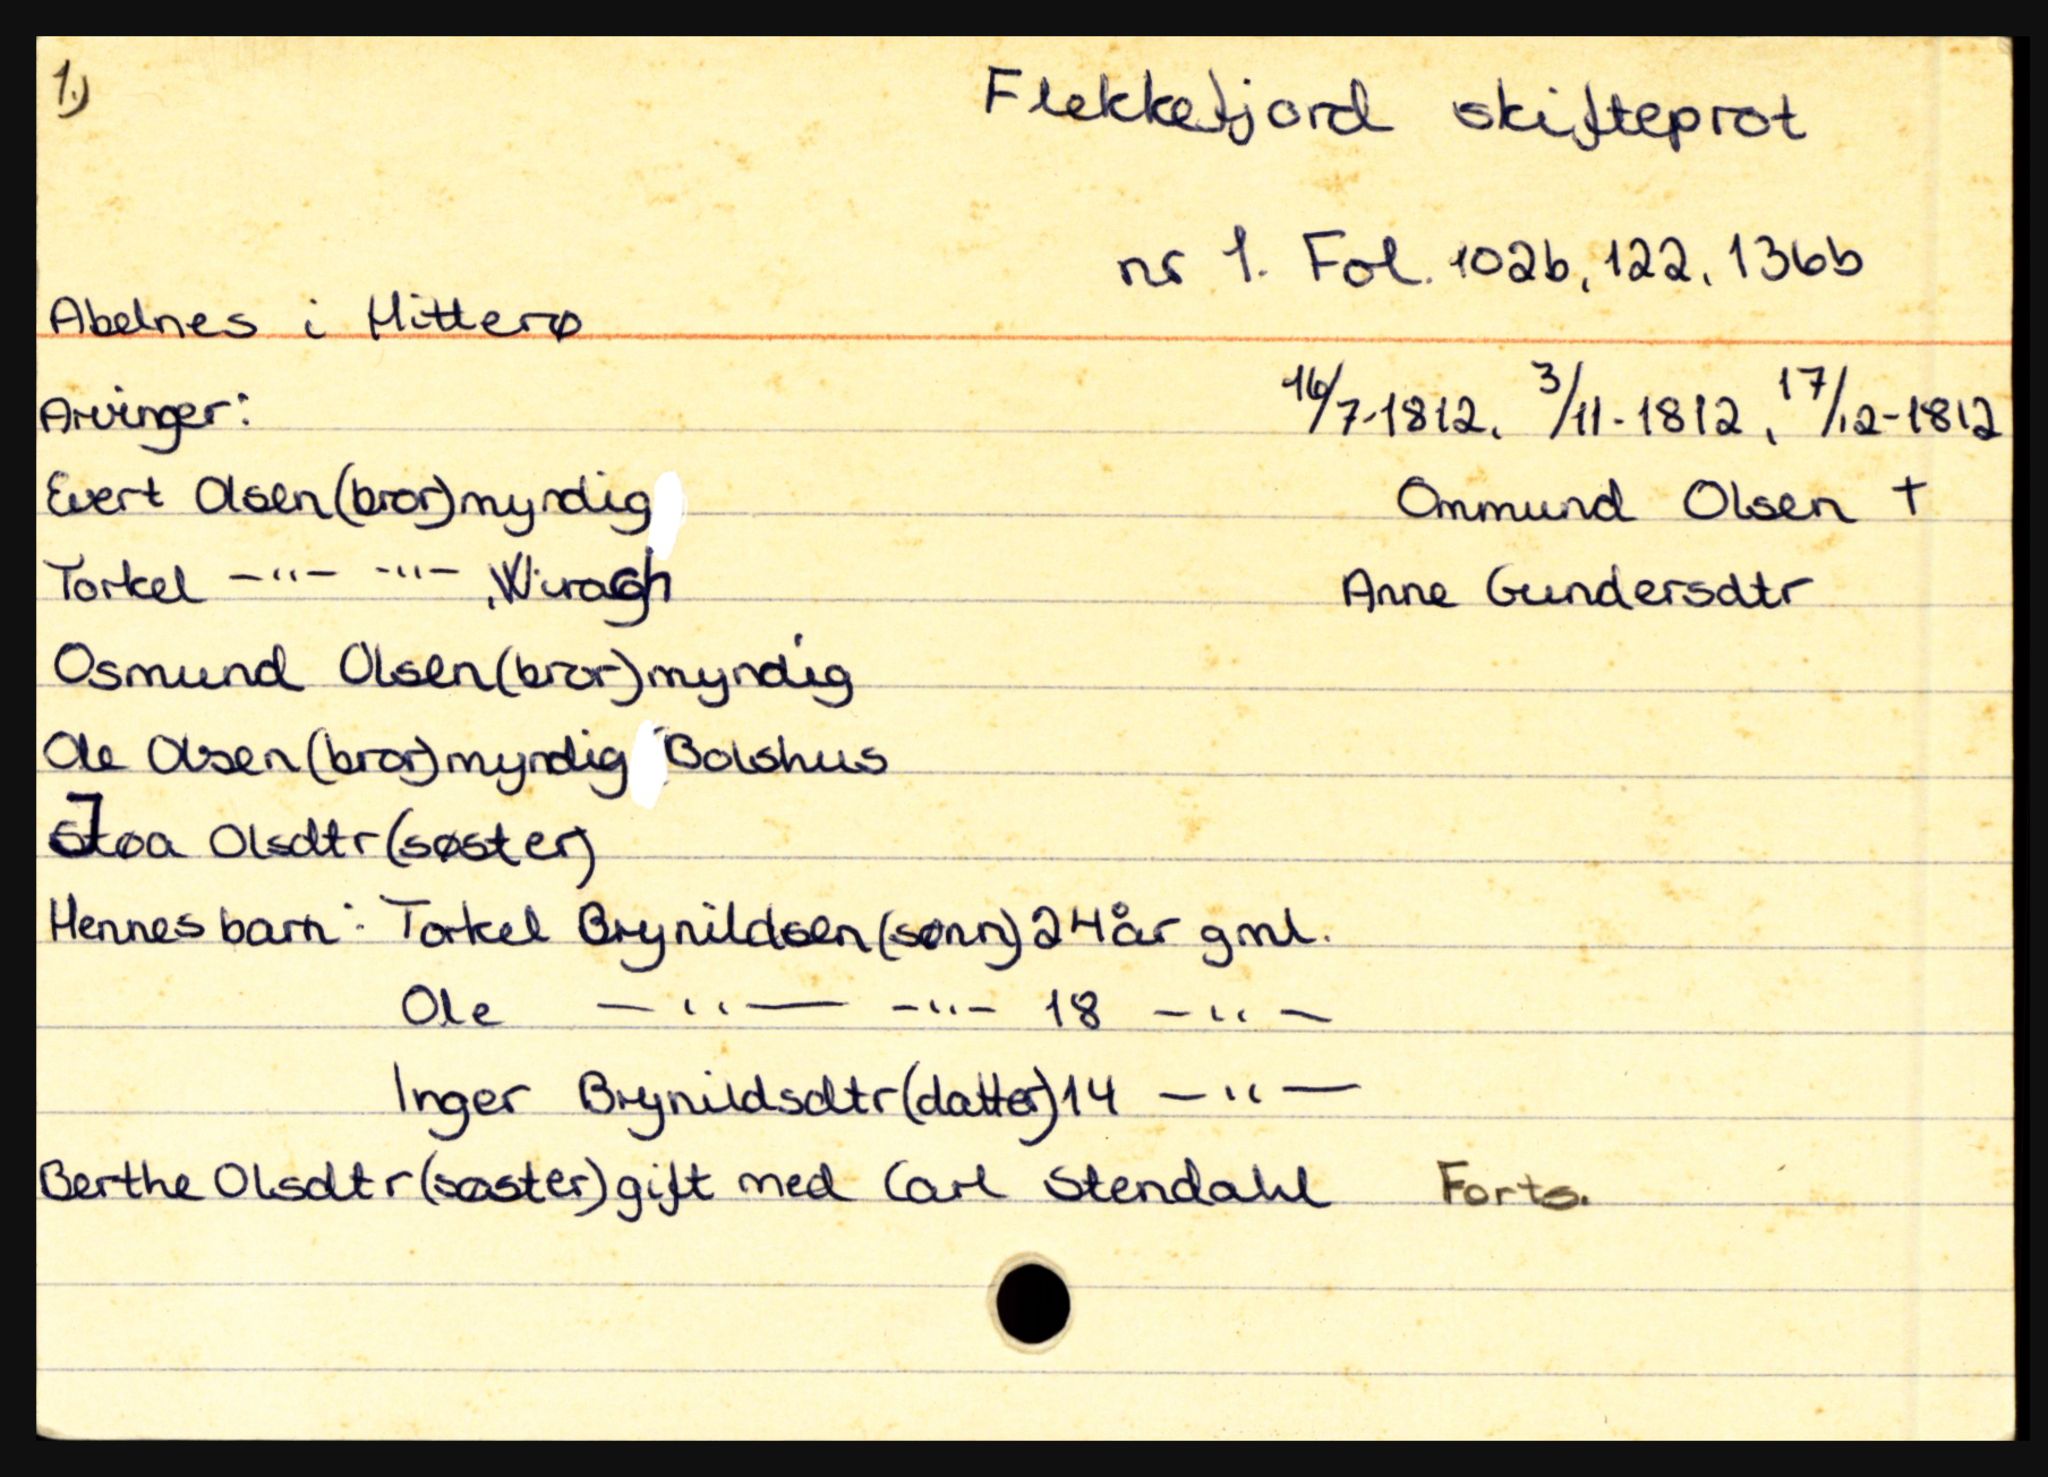 1.)
Flekkefjord skifteprot
nr 1. Fol. 102b, 122, 136b
Abelnes i Hitterø
Arvinger:
16/7-1812, 3/11-1812, 17/12-1812
Evert Olsen (bror) myndig
Ommund Olsen †
Torkel -"- -"-,
Anne Gundersdtr
Osmund Olsen (bror) myndig
Ole Olsen (bror) myndig Bolshus
Olsdtr (søster)
Hennes barn: Torkel Brynildsen (sønn) 24 år gml.
Ole -"- -"- 18 -"-
Inger Brynildsdtr (datter) 14 -"-
Berthe Olsdtr (søster) gift med Carl Stendahl Forts.